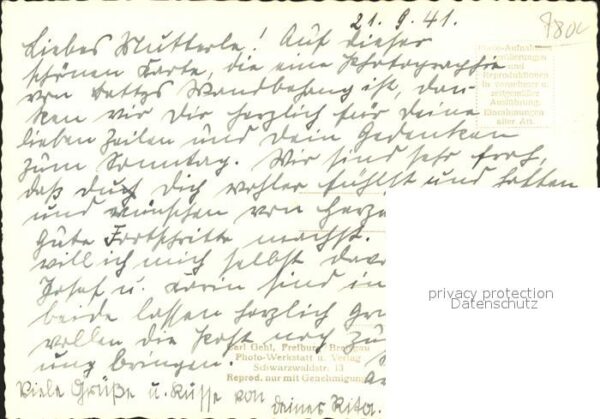 21. 9. 41.
Liebes Mutterle! Auf dieser
schönen Karte, die eine Photographie
von Vattys Wandbehang ist, dan-
ken wir Dir herzlich für Deine
lieben Zeilen und Dein Gedenken
zum Sonntag. Wir sind sehr froh,
daß du Dich wohler fühlst und hoffen
und wünschen von Herze
Gute Fortschritte machst.
will ich mich selbst davo
Josef u. Karin sind in
beide lassen herzlich Gr
wollen die Post noch zu
ung bringen.
Viele Grüße u. Küsse von
Deiner Rita.
Photo-Aufnah
und
Reproduktionen
in vornehmer u.
zeitgemäßer
Ausführung.
Einrahmungen
aller Art.
Carl Gehl, Freiburg Breisgau
Photo-Werkstatt u. Verlag
Schwarzwaldstr. 13
Reprod. nur mit Genehmigung
privacy protection
Datenschutz